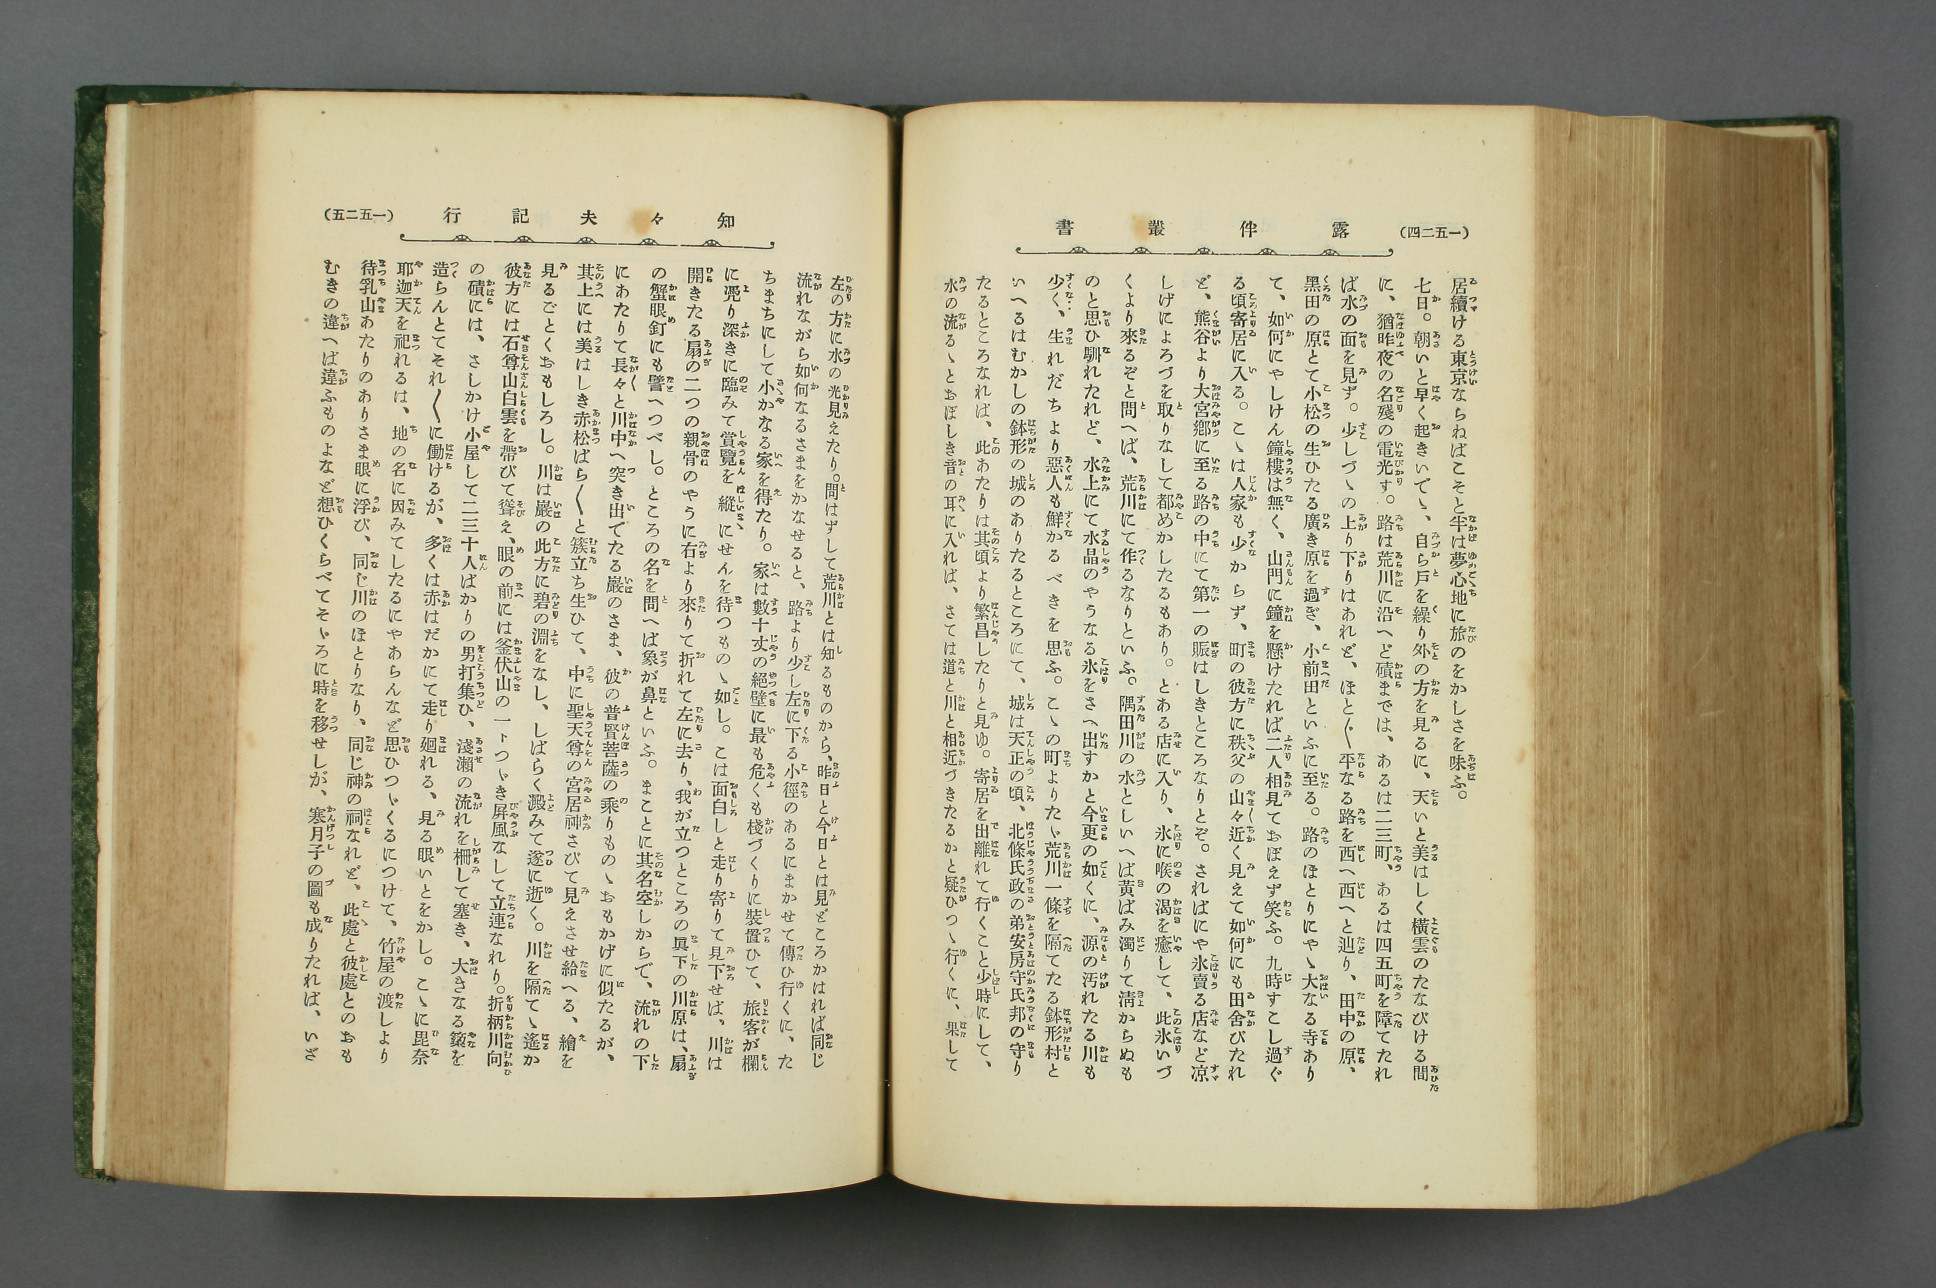 (一五二四)
露伴叢書
居續ける東京ならねばこそと半は夢心地に旅のをかしさを味ふ。
七日。朝いと早く起きいでゝ、自ら戸を繰り外の方を見るに、天いと美はしく橫雲のたなびける間
に、猶昨夜の名殘の電光す。路は荒川に沿へど磧までは、あるは二三町、あるは四五町を障てたれ
ば水の面を見ず。少しづゝの上り下りはあれど、ほと〱平なる路を西へ西へと辿り、田中の原、
黑田の原とて小松の生ひたる廣き原を過ぎ、小前田といふに至る。路のほとりにやゝ大なる寺あり
て、如何にやしけん鐘樓は無く、山門に鐘を懸けたれば二人相見ておぼえず笑ふ。九時すこし過ぐ
る頃寄居に入る。こゝは人家も少からず、町の彼方に秩父の山々近く見えて如何にも田舍びたれ
ど、熊谷より大宮鄕に至る路の中にて第一の賑はしきところなりとぞ。さればにや氷賣る店など凉
しげによろづを取りなして都めかしたるもあり。とある店に入り、氷に喉の渴を癒して、此氷いづ
くより來るぞと問へば、荒川にて作るなりといふ。隅田川の水としいへば黃ばみ濁りて淸からぬも
のと思ひ馴れたれど、水上にて水晶のやうなる氷をさへ出すかと今更の如くに、源の汚れたる川も
少く、生れだちより惡人も鮮かるべきを思ふ。こゝの町よりたゞ荒川一條を隔てたる鉢形村と
いへるはむかしの鉢形の城のありたるところにて、城は天正の頃、北條氏政の弟安房守氏邦の守り
たるところなれば、此あたりは其頃より繁昌したりと見ゆ。寄居を出離れて行くこと少時にして、
水の流るゝとおぼしき音の耳に入れば、さては道と川と相近づきたるかと疑ひつゝ行くに、果して
知々夫記行
(一五二五)
左の方に水の光見えたり。問はずして荒川とは知るものから、昨日と今日とは見どころかはれば同じ
流れながら如何なるさまをかなせると、路より少し左に下る小徑のあるにまかせて傳ひ行くに、た
ちまちにして小かなる家を得たり。家は數十丈の絕壁に最も危くも棧づくりに裝置ひて、旅客が欄
に凭り深きに臨みて賞覽を縱にせんを待つものゝ如し。こは面白しと走り寄りて見下せば、川は
開きたる扇の二つの親骨のやうに右より來りて折れて左に去り、我が立つところの眞下の川原は、扇
の蟹眼釘にも譬へつべし。ところの名を問へば象が鼻といふ。まことに其名空しからで、流れの下
にあたりて長々と川中へ突き出でたる巖のさま、彼の普賢菩薩の乘りものゝおもかげに似たるが、
其上には美はしき赤松ばら〱と簇立ち生ひて、中に聖天尊の宮居神さびて見えさせ給へる、繪を
見るごとくおもしろし。川は巖の此方に碧の淵をなし、しばらく澱みて遂に逝く。川を隔てゝ遙か
彼方には石尊山白雲を帶びて聳え、眼の前には釜伏山の一トつゞき屛風なして立連なれり。折柄川向
の磧には、さしかけ小屋して二三十人ばかりの男打集ひ、淺瀨の流れを柵して塞き、大きなる簗を
造らんとてそれ〱に働けるが、多くは赤はだかにて走り廻れる、見る眼いとをかし。こゝに毘奈
耶迦天を祀れるは、地の名に因みてしたるにやあらんなど思ひつゞくるにつけて、竹屋の渡しより
待乳山あたりのありさま眼に浮び、同じ川のほとりなり、同じ神の祠なれど、此處と彼處とのおも
むきの違へば違ふものよなど想ひくらべてそゞろに時を移せしが、寒月子の圖も成りたれば、いざ